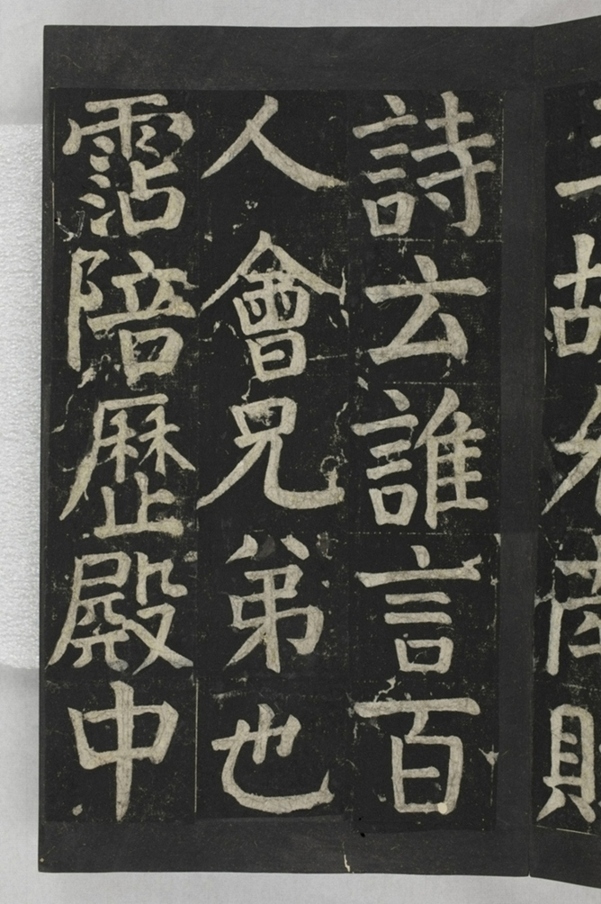 詩云誰言百
人會兄弟也
霑陪歷殿中